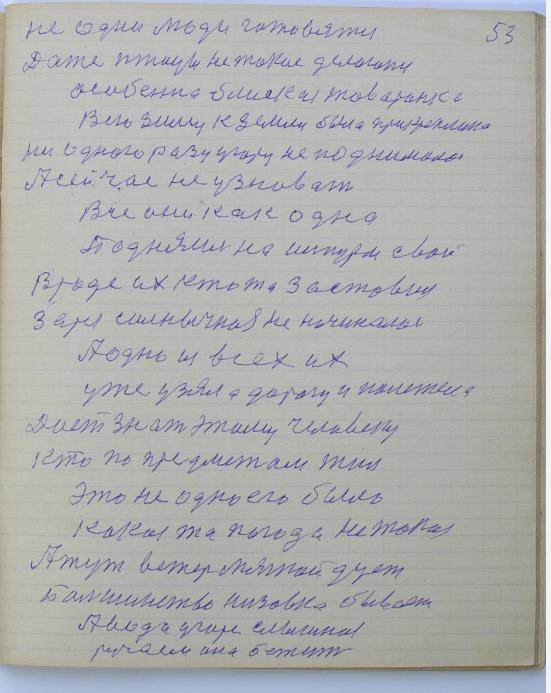 не одни люди готовяти
53
Даже птицы не такое делоют
особенна блиская товаранка
Всю зиму к земли была прикреплина
ни одного разу угору не поднималас
А сейчас не узноват
Все они как одна
Поднялис на штурм свой
Вроде их кто та заставил
Заря солнычная не починалас
А одна из всех их
уже узяла дорогу и полетела
Дает знат этаму человеку
Кто по предметам жил
Это не одно его было
Какая та погода не такая
А тут ветер мяхкой дует
Болшинство низовка бывает
А вода угоре
ручаем она бежит